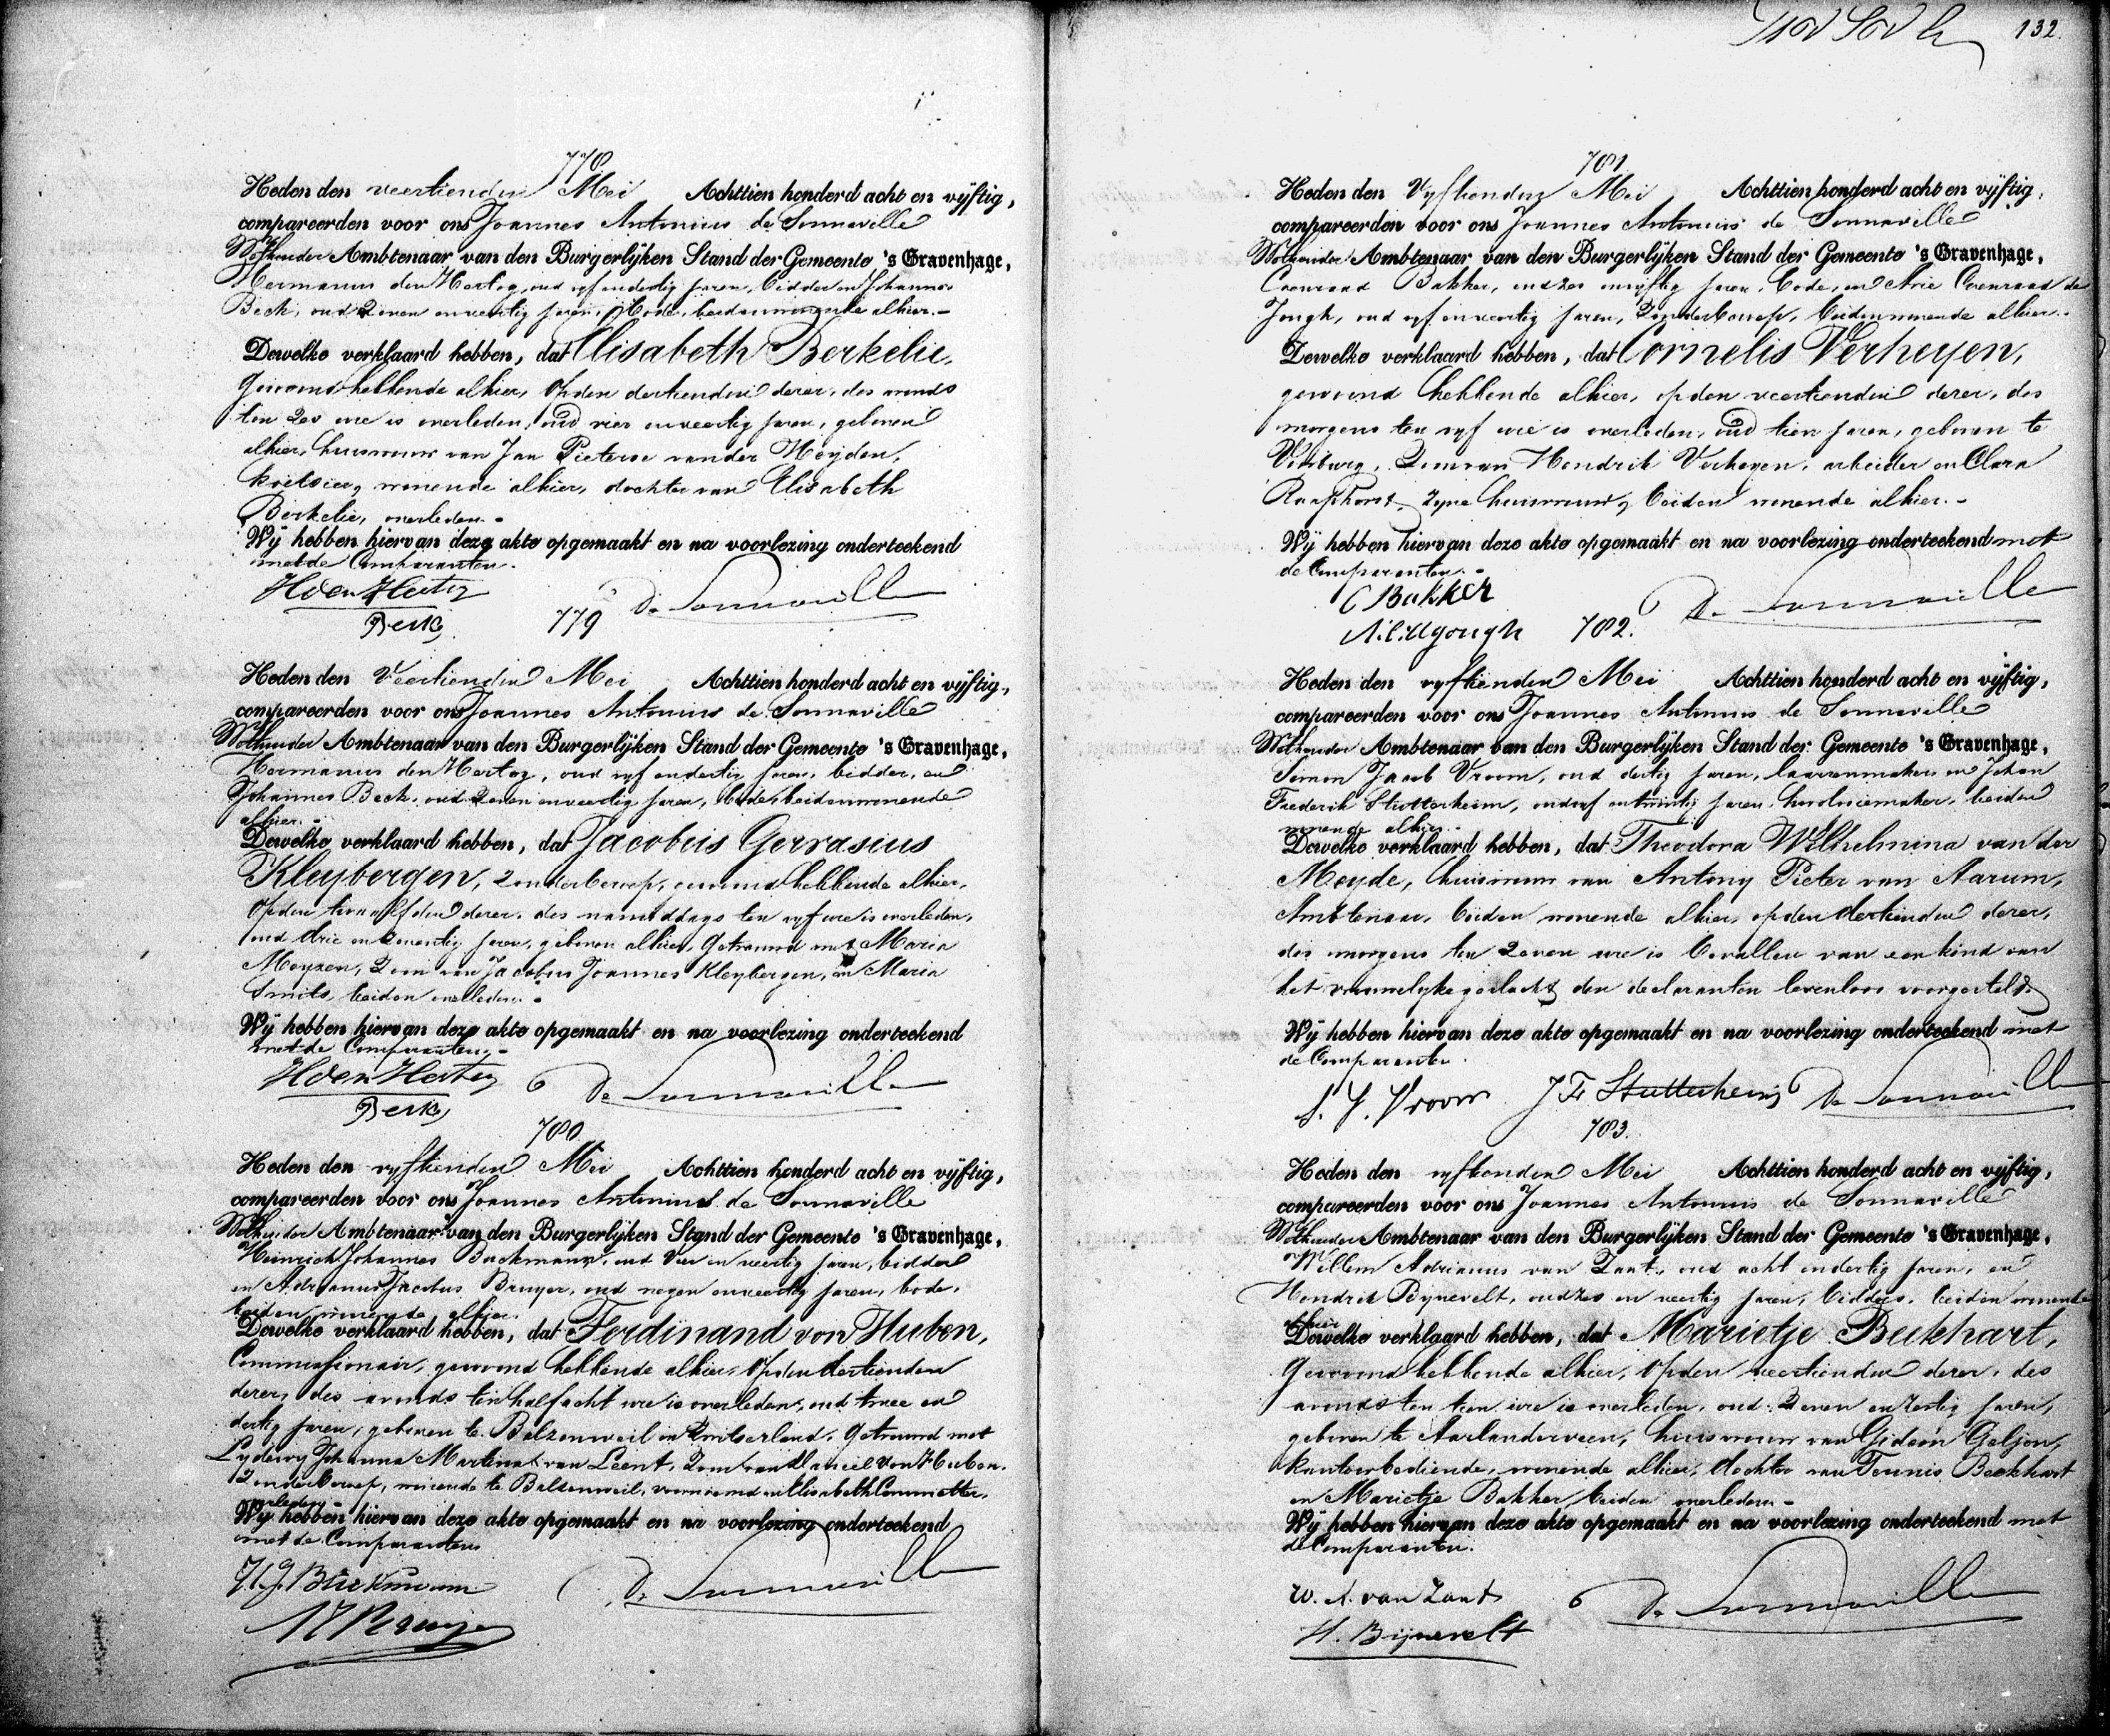 132.
778
Heden den veertienden Mei Achttien honderd acht en vijftig,
compareerden voor ons Joannes Antonius de Sonnaville
Wethouder Ambtenaar van den Burgerlijken Stand der Gemeente 's Gravenhage,
Hermanus den Hertog, oud vyf en dertig jaren, bidder en Johannes
Beck, oud Zeven en veertig jaren, Bode, beiden wonende alhier.-
Dewelke verklaard hebben, dat Elisabeth Berkelie,
gewoond hebbende alhier, op den dertienden dezer, des avonds
ten zes ure is overleden, oud vier en veertig jaren, geboren
alhier, huisvrouw van Jan Pieterse van der Heyden,
koetsier, wonende alhier, dochter van Elisabeth
Berkelie, overleden.-
Wij hebben hiervan deze akte opgemaakt en na voorlezing onderteekend
met de Comparanten.
H den Hertog De Sonnaville
Beck
779
Heden den Veertienden Mei Achttien honderd acht en vijftig,
compareerden voor ons Joannes Antonius de Sonnaville
Wethouder Ambtenaar van den Burgerlijken Stand der Gemeente 's Gravenhage,
Hermanus den Hertog, oud vyf en dertig jaren, bidder, en
Johannes Beck, oud Zeven en veertig jaren, bode, beiden wonende
alhier.-
Dewelke verklaard hebben, dat Jacobus Gervasius
Kleybergen, zonder beroep, gewoond hebbende alhier,
op den twaalfden dezer, des namiddags ten vyf ure is overleden,
oud drie en zeventig jaren, geboren alhier, Getrouwd met Maria
Meyzen, Zoon van Jacobus Joannes Kleybergen, en Maria
Smits, beiden overleden.-
Wij hebben hiervan deze akte opgemaakt en na voorlezing onderteekend
met de Comparanten.-
H den Hertog De Sonnaville
Beck
780
Heden den vyftienden Mei Achttien honderd acht en vijftig,
compareerden voor ons Joannes Antonius de Sonnaville
Wethouder Ambtenaar van den Burgerlijken Stand der Gemeente 's Gravenhage,
Heinrich Johannes Buckmann, oud Vier en veertig jaren, bidder
en Adrianus Jacobus Bruyer, oud negen en veertig jaren, bode,
beiden wonende alhier.
Dewelke verklaard hebben, dat Ferdinand von Huben,
Commissionair, gewoond hebbende alhier, op den dertienden
dezer, des avonds ten half acht ure is overleden, oud twee en
dertig jaren, geboren te Belzenweil in Zwitserland, Getrouwd met
Lydewy Johanna Martina van Leent, Zoon van Daniel von Huben,
zonder beroep, wonende te Belzenweil, voornoemd en Elisabeth
overleden.-
Wij hebben hiervan deze akte opgemaakt en na voorlezing onderteekend
met de Comparanten
H. J. Bückmann De Sonnaville
781
Heden den Vyftienden Mei Achttien honderd acht en vijftig,
compareerden voor ons Joannes Antonius de Sonnaville
Wethouder Ambtenaar van den Burgerlijken Stand der Gemeente 's Gravenhage,
Coenraad Bakker, oud zes en vyftig jaren, Bode, en Arie Coenraad de
Jongh, oud vyf en veertig jaren, Zonder beroep, beiden wonende alhier.-
Dewelke verklaard hebben, dat Cornelis Verheyen,
gewoond hebbende alhier, op den veertienden dezer, des
morgens ten vyf ure is overleden, oud tien jaren, geboren te
Voorburg, Zoon van Hendrik Verheyen, arbeider en Clara
Raaphorst, zyne huisvrouw, beiden wonende alhier.-
Wij hebben hiervan deze akte opgemaakt en na voorlezing onderteekend met
de Comparanten.-
C Bakker De Sonnaville
A. C. d Jongh 782.
Heden den vyftienden Mei Achttien honderd acht en vijftig,
compareerden voor ons Joannes Antonius de Sonnaville
Wethouder Ambtenaar van den Burgerlijken Stand der Gemeente 's Gravenhage,
Simon Jacob Vroom, oud dertig jaren, laarzenmaker en Johan
Frederik Stutterheim, oud vyf en twintig jaren, horologiemaker, beiden
wonende alhier.-
Dewelke verklaard hebben, dat Theodora Wilhelmina van der
Meyde, huisvrouw van Antony Pieter van Aarum,
Ambtenaar, beiden wonende alhier, op den dertienden dezer,
des morgens ten Zeven ure is bevallen van een kind van
het vrouwelyke geslacht, den declaranten levenloos voorgesteld.
Wij hebben hiervan deze akte opgemaakt en na voorlezing onderteekend met
de Comparanten.
S. J. Vroom J F Stutterheim De Sonnaville
783.
Heden den vyftienden Mei Achttien honderd acht en vijftig,
compareerden voor ons Joannes Antonius de Sonnaville
Wethouder Ambtenaar van den Burgerlijken Stand der Gemeente 's Gravenhage,
Willem Adrianus van Zant, oud acht en dertig jaren, en
Hendrik Bynevelt, oud zes en veertig jaren, bidders, beiden wonende
alhier
Dewelke verklaard hebben, dat Marietje Bekhart,
Gewoond hebbende alhier, op den veertienden dezer, des
avonds ten tien ure is overleden, oud Zeven en zestig jaren,
geboren te Aarlanderveen, huisvrouw van Gideon Geljon,
kantoorbediende, wonende alhier, dochter van Teunis Beekhart
en Marietje Bakker, beiden overleden.-
Wij hebben hiervan deze akte opgemaakt en na voorlezing onderteekend met
de Comparanten.
W. A. van Zant De Sonnaville
H. Bijnevelt